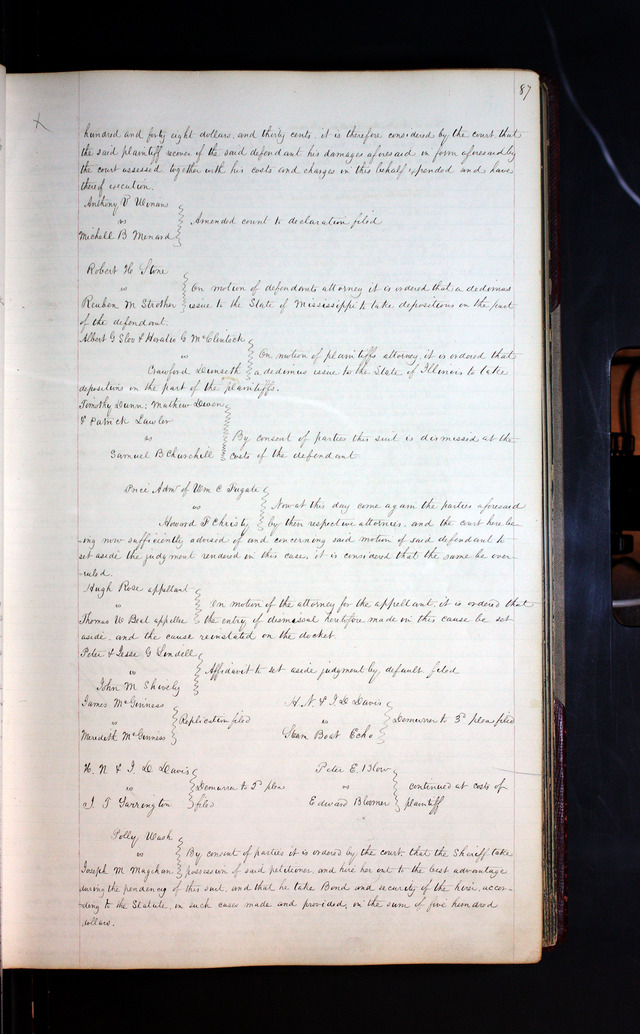 87
hundred and forty eight dollars, and thirty cents. it is therefore considered by the court, that
the said plaintiff recover of the said defendant his damages aforesaid in form aforesaid by
the court assessed together with his costs and charges in this behalf expended and have
thereof execution.
Anthony V
vs
Amended count to declaration filed
Michell B Menard
Robert H. Stone
vs
On motion of defendants attorney it is ordered that a dedimus
Reuben M Strother
issue to the State of Mississippi to take depositions on the part
of the defendant.
Albert G & Horatio G McClintick
vs
On motion of plaintiffs attorney, it is ordered that
Crawford Dunseth
a dedimus issue to the State of Illinois to take
depositions on the part of the plaintiffs.
Timothy Dunn; Mathew
& Patrick Lawler
vs
By consent of parties this suit is dismissed at the
Samuel B Churchill
costs of the defendant
Price Admr of Wm C Fugate
vs
Now at this day come again the parties aforesaid
Howard F Christy
by their respective attornies, and the court here be-
-ing now sufficiently advised of and concerning said motion of said defendant to
set aside the judgment rendered in this case, it is considered that the same be over-
-ruled.
Hugh Rose appellant
vs
On motion of the attorney for the appellant, it is ordered that
Thomas W Beal appellee
the entry of dismissal heretofore made in this cause be set
aside, and the cause reinstated on the docket.
Peter & Jesse G Lindell
vs
Affidavit to set aside judgment by default filed
John M Shively
James McGinness
vs
Replication filed
Meredith McGinness
H. N. & I. D Davis
vs
Demurrer to 3d plea filed
Steam Boat Echo
H. N & I. D. Davis
vs
Demurrer to 3d plea
J. T Farrington
filed
Peter E. Blow
vs
continued at costs of
Edward Bloomer
plaintiff
Polly Wash
vs
By consent of parties it is ordered by the court, that the Sheriff take
Joseph M Magehan
possession of said petitioner, and hire her out to the best advantage
during the pendency of this suit, and that he take Bond and security of the hirer, accor-
-ding to the Statute, in such cases made and provided, in the sum of five hundred
dollars.